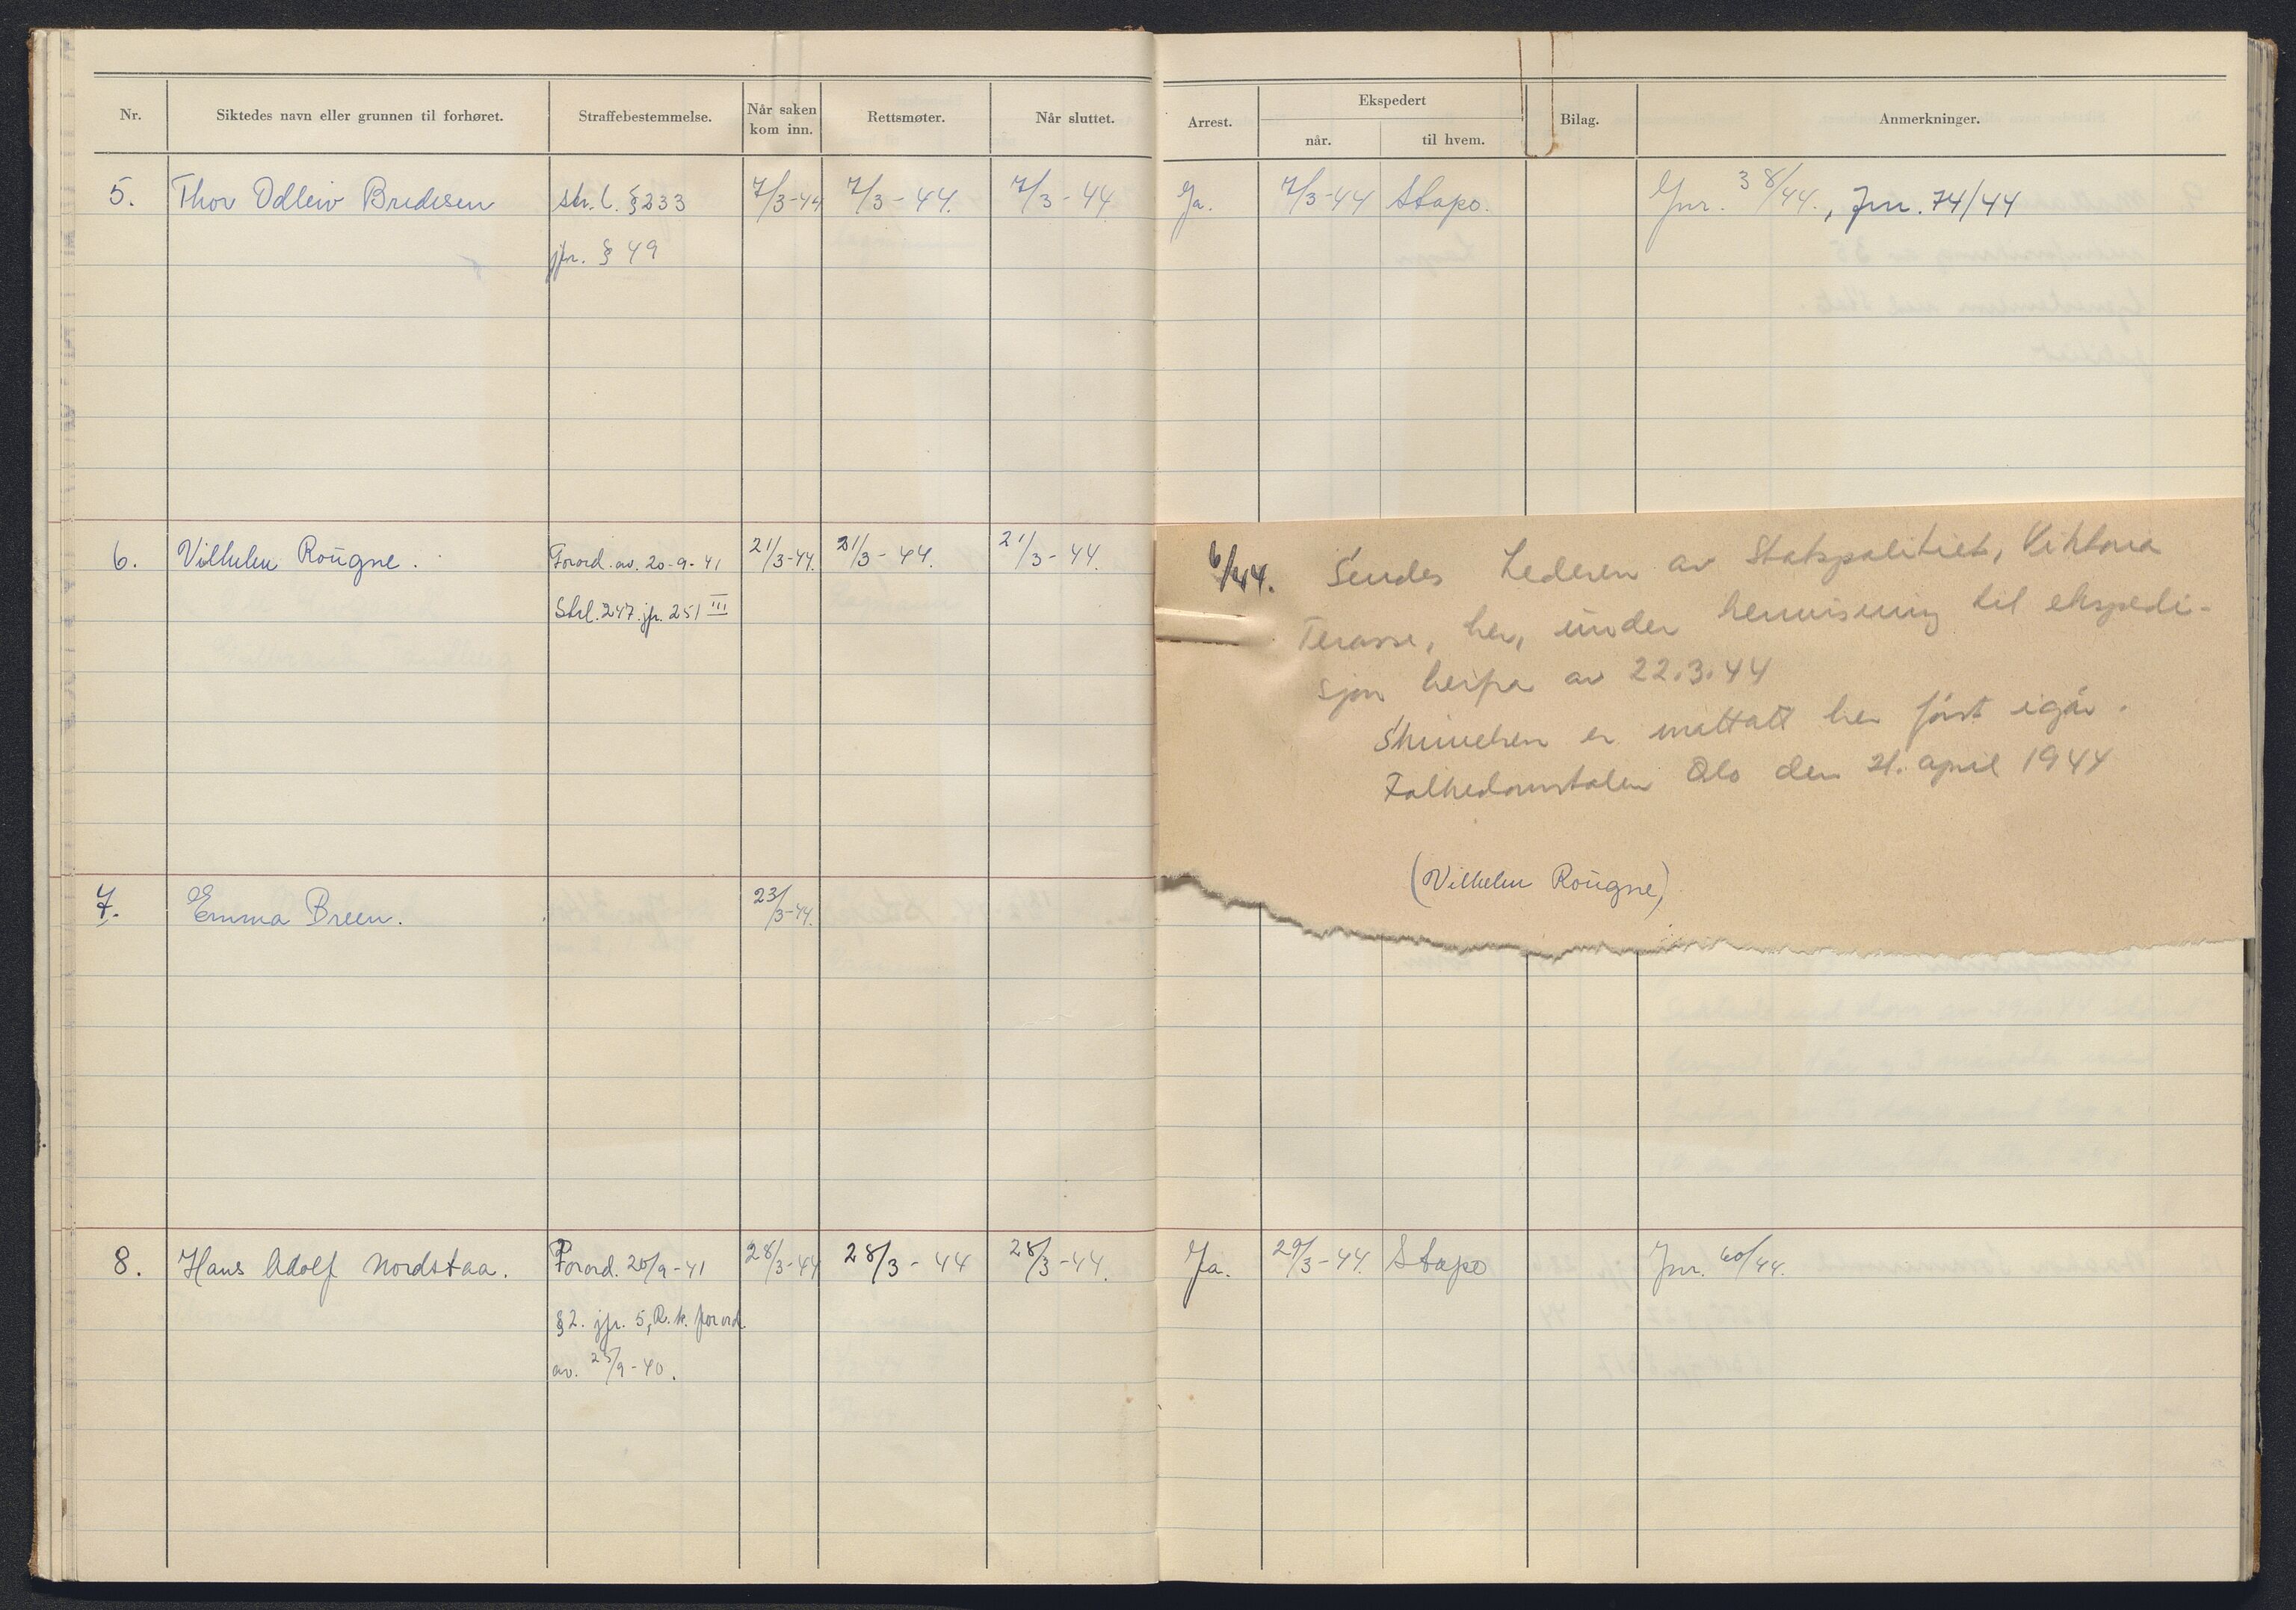 Nr. Siktedes navn eller grunnen til forhøret. Straffebestemmelse. Når saken kom inn. Rettsmøter. Når sluttet. Arrest. Ekspedert når. til hvem. Bilag. Anmerkninger.
5. Thor Odleiv Bredesen str. l. § 233 7/3-44 7/3-44. 7/3-44 Ja. 7/3-44 Stapo. Jnr. 38/44., Jnr. 74/44
jfr. § 49
6. Vilhelm Rougne. Forord. av. 20-9-41 21/3-44. 21/3-44. 21/3-44.
Strl. 247. jfr. 251 III
6/44. Sendes Lederen av Statspolitiet, Viktoria
Terasse, her, under henvisning til ekspedi-
sjon herfra av 22.3.44
er mottatt her først igår.
Oslo den 21. april 1944
(Vilhelm Rougne)
7. Emma Breen. 23/3-44.
8. Hans Adolf Nordstaa. Forord. 20/9-41 28/3-44 28/3-44 28/3-44. Ja. 29/3-44. Stapo Jnr. 60/44.
§2. jfr. 5, R.k. forord.
av. 25/9-40.